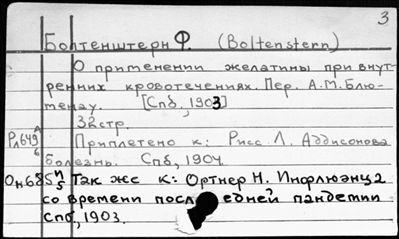 3
Болтенштерн Ф. (Boltenstern)
О применении желатины при внут-
ренних кровотечениях. Пер. А.М. Блю-
менау. [Спб, 1903]
32 стр.
Приплетено к: Рисс Л. Аддисонова
болезнь. Спб, 1904.
Так же к: Ортнер Н. Инфлюэнца
со времени последней пандемии
Спб, 1903.